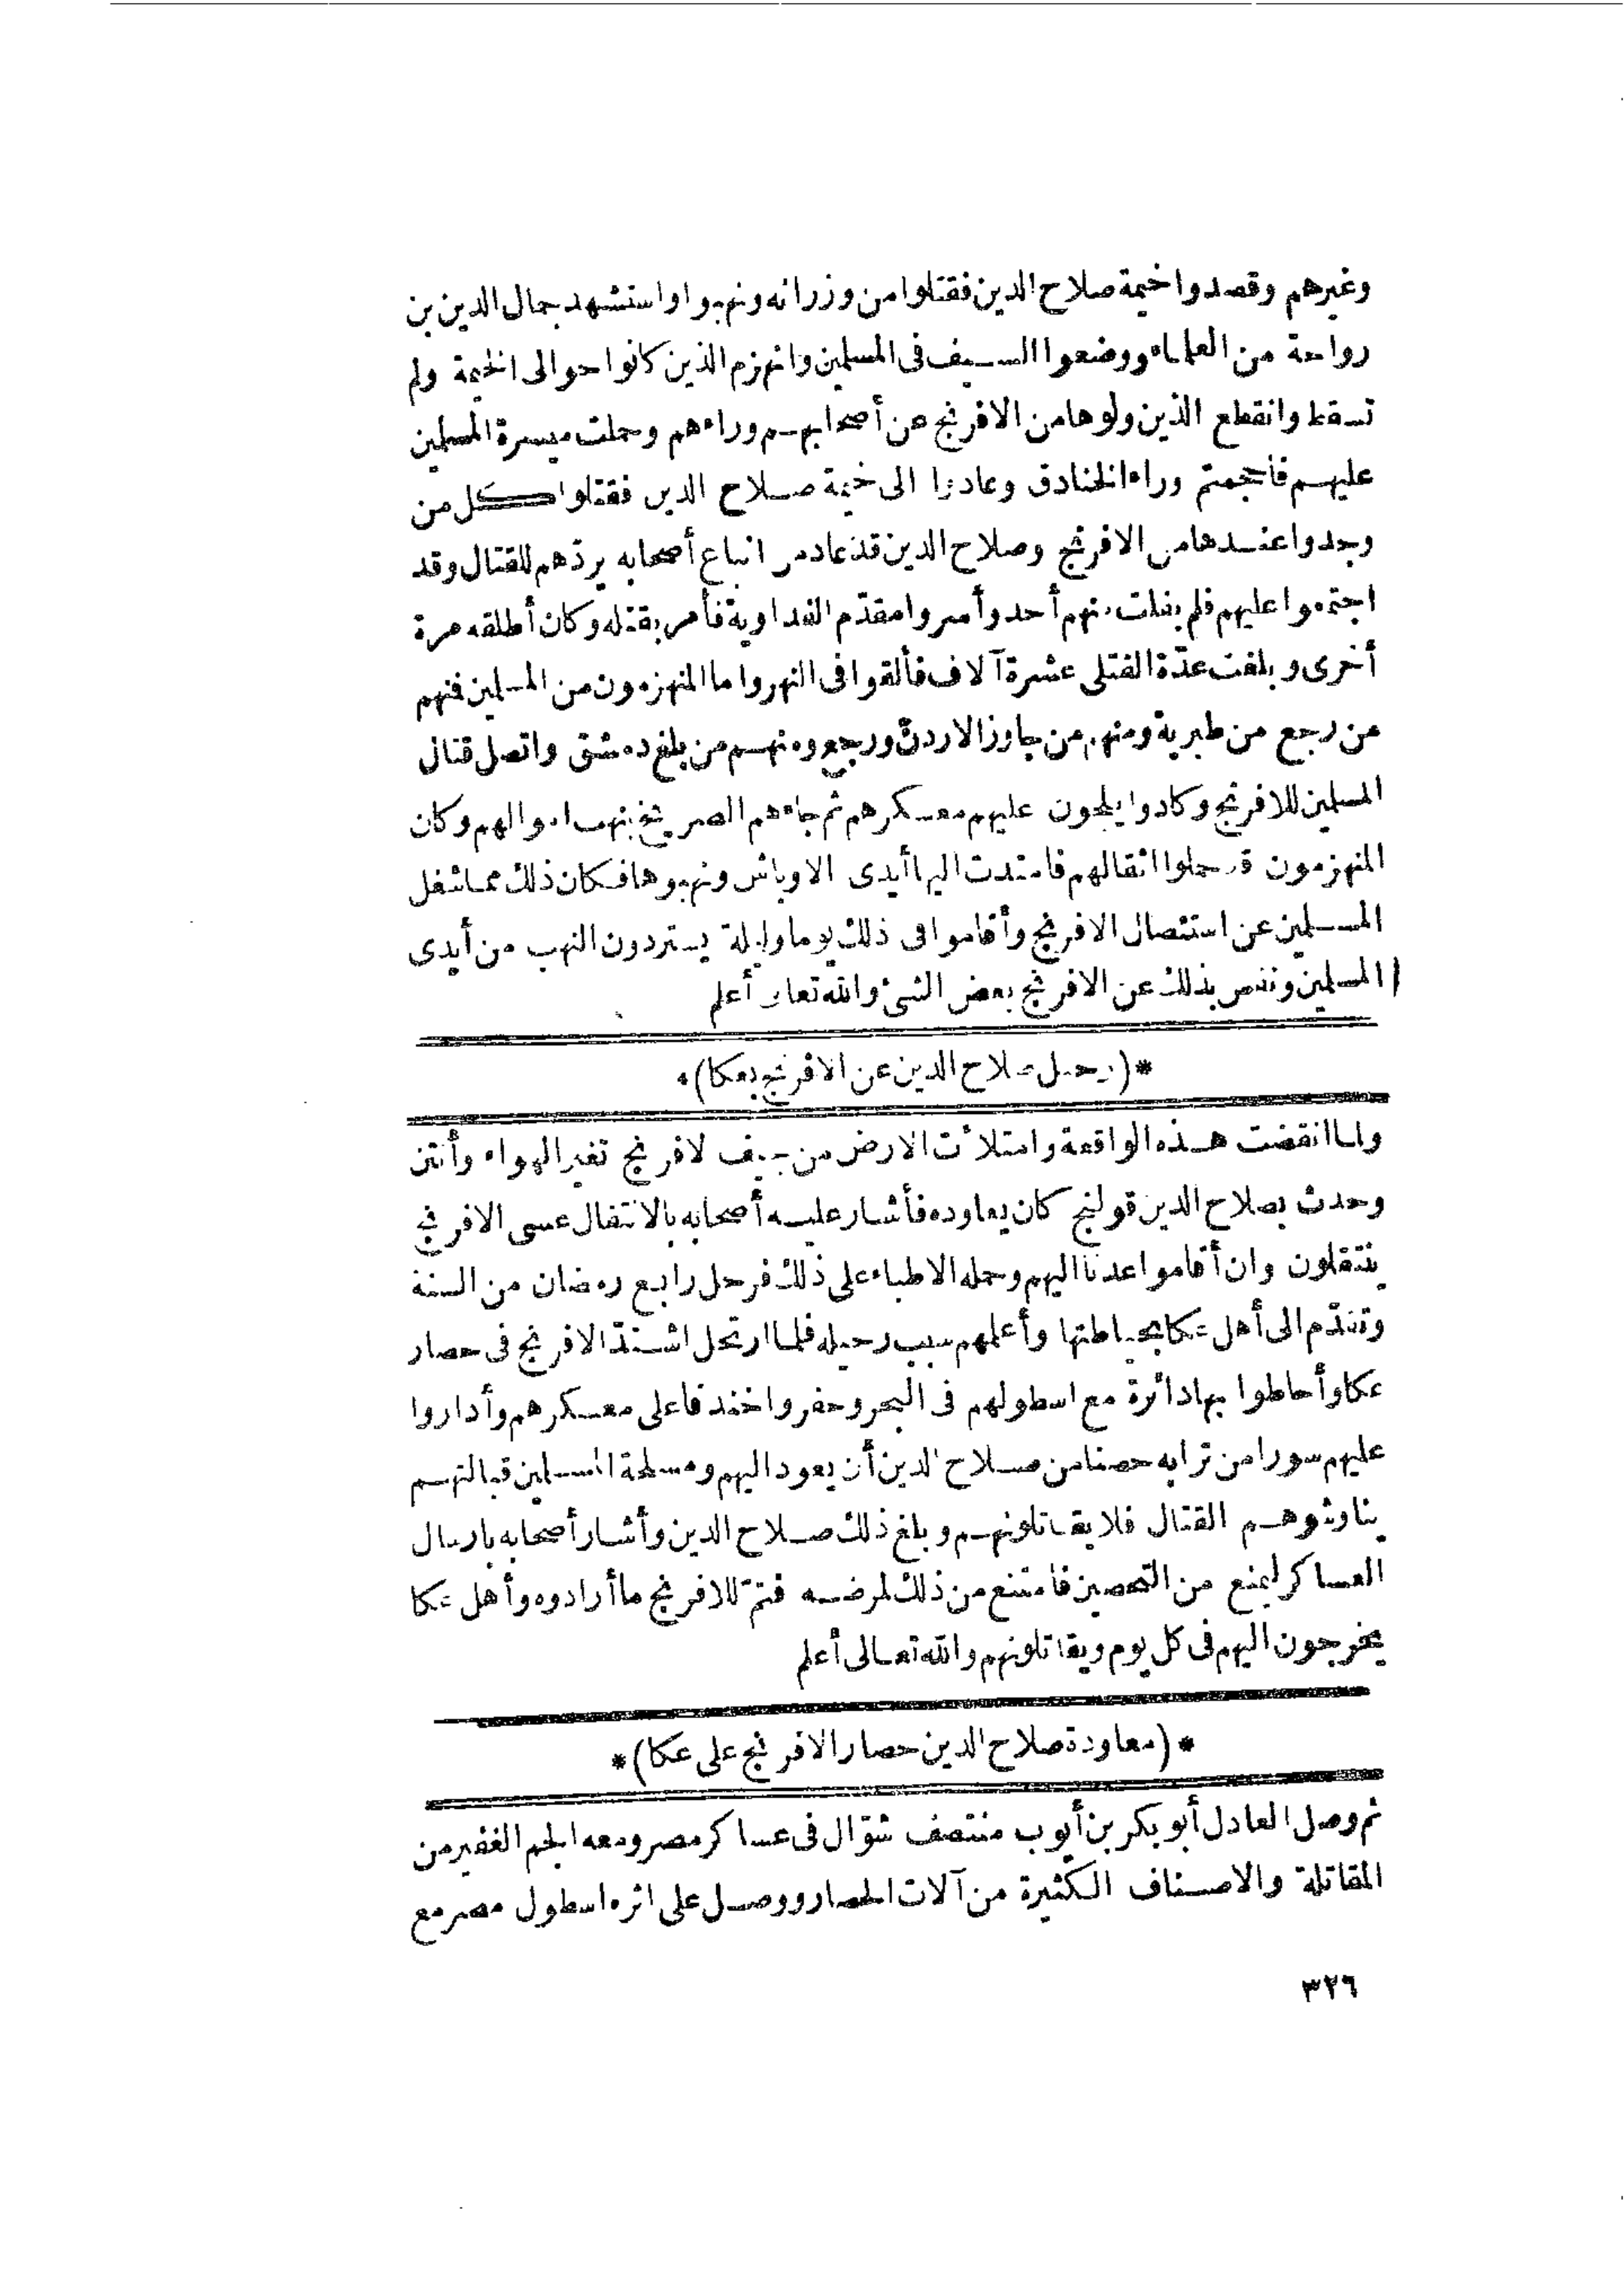 وغيرهم وقصدوا خيمة صلاح الدين فقتلوا من وزرائه ونهبوا واستشهد جمال الدين بن
رواحة من العلماء ووضعوا السيف فى المسلمين وانهزم الذين كانوا حوالى الخيمة ولم
تسقط وانقطع الذين ولوها من الافرنج عن أصحابهم وراءهم وحملت ميسرة المسلمين
عليهم فأحجمتم وراء الخنادق وعادوا الى خيمة صلاح الدين فقتلوا كل من
وجدوا عندها من الافرنج وصلاح الدين قد عاد من اتباع أصحابه يردّهم للقتال وقد
اجتمعوا عليهم فلم يفلت منهم أحد وأسروا مقدّم الفداوية فأمر بقتله وكان أطلقه مرة
أخرى وبلغت عدّة القتلى عشرة آلاف فألقوا فى النهر واما المنهزمون من المسلمين فمنهم
من رجع من طبرية ومنهم من جاوز الاردنّ ورجع ومنهم من بلغ دمشق واتصل قتال
المسلمين للافرنج وكادوا يلجون عليهم معسكرهم ثم جاءهم الصريخ بنهب اموالهم وكان
المنهزمون قد حملوا اثقالهم فامتدت اليها أيدى الاوباش ونهبوها فكان ذلك مما شغل
المسلمين عن استئصال الافرنج وأقاموا فى ذلك يوما وليلة يستردون النهب من أيدى
المسلمين ونفس بذلك عن الافرنج بعض الشئ والله تعالى أعلم
*(رحيل صلاح الدين عن الافرنج بعكا)*
ولما انقضت هذه الواقعة وامتلأت الارض من جيف الافرنج تغير الهواء وأنتن
وحدث بصلاح الدين قولنج كان يعاوده فأشار عليه أصحابه بالانتقال عسى الافرنج
ينتقلون وان أقاموا عدنا اليهم وحمله الاطباء على ذلك فرحل رابع رمضان من السنة
وتقدّم الى أهل عكا بحياطتها وأعلمهم سبب رحيله فلما ارتحل اشتدّ الافرنج فى حصار
عكا وأحاطوا بها دائرة مع اسطولهم فى البحر وحفروا خندقا على معسكرهم وأداروا
عليهم سورا من ترابه حصنا من صلاح الدين أن يعود اليهم ومسلحة المسلمين قبالتهم
يناوشوهم القتال فلا يقاتلونهم وبلغ ذلك صلاح الدين وأشار أصحابه بارسال
العساكر ليمنع من التحصين فامتنع من ذلك لمرضه فتمّ للافرنج ما أرادوه وأهل عكا
يخرجون اليهم فى كل يوم ويقاتلونهم والله تعالى أعلم
*(معاودة صلاح الدين حصار الافرنج على عكا)*
ثم وصل العادل أبو بكر بن أيوب منتصف شوّال فى عساكر مصر ومعه الجم الغفير من
المقاتلة والاصناف الكثيرة من آلات الحصار ووصل على اثره اسطول مصر مع
٣٢٦